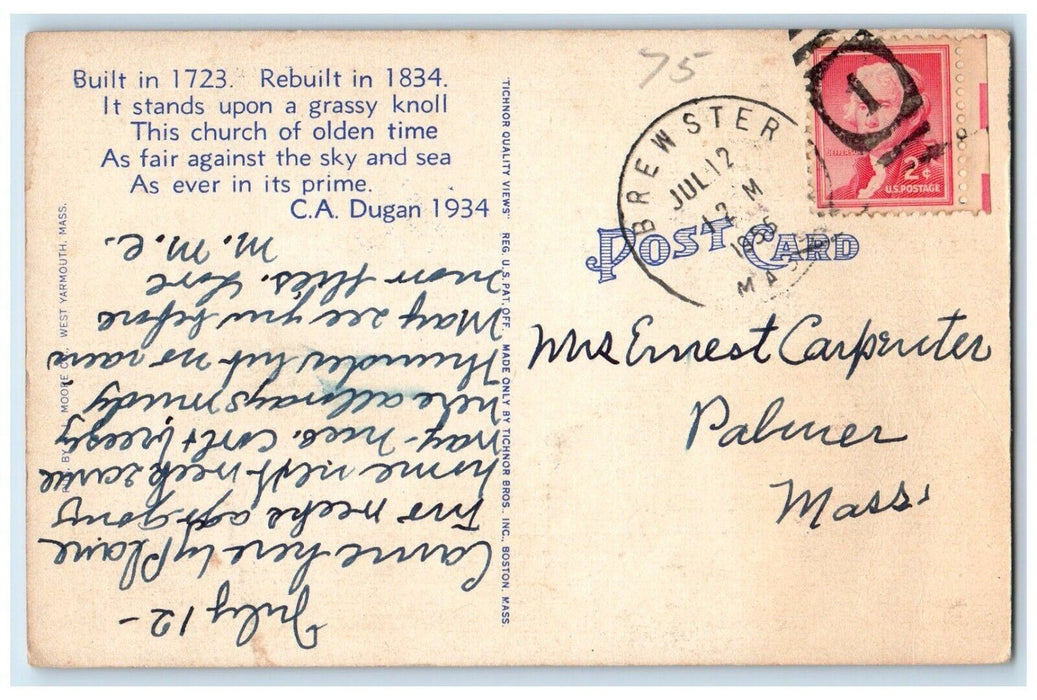 Built in 1723. Rebuilt in 1834.
It stands upon a grassy knoll
This church of olden time
As fair against the sky and sea
As ever in its prime.
C.A. Dugan 1934
July 12-
Came here by Plane
two weeks ago. going
home next week same
way. nice. cool & breezy
here allways windy
Thunder but no rain
May see you before
this. Love
M. M. C.
BY MOORE WEST YARMOUTH, MASS.
"TICHNOR QUALITY VIEWS" REG. U.S. PAT. OFF. MADE ONLY BY TICHNOR BROS. INC., BOSTON, MASS.
75
BREWSTER
JUL 12
12 M
MASS
1
2¢
U.S. POSTAGE
POST CARD
Mrs Ernest Carpenter
Palmer
Mass.